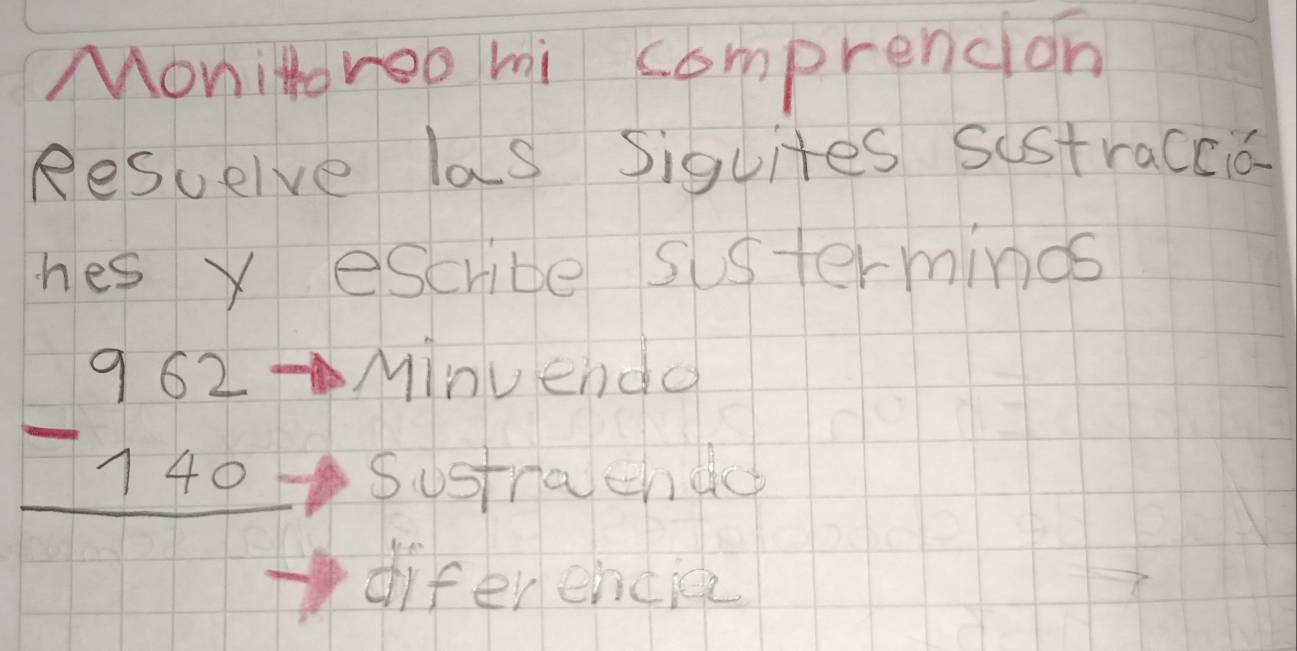 Monitoreo mi comprención
Resuelve las Siguites sustraccio-
nes y escribe sus terminos
962 → Minuendo
- 140 → Sustraendo
→ diferencia